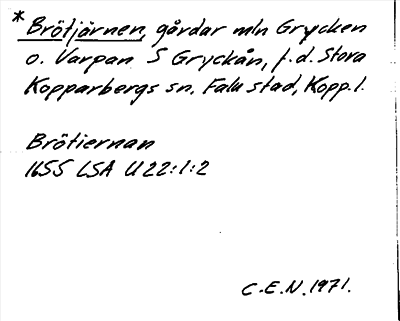 * Brötjärnen, gårdar mln Grycken
o. Varpan S Gryckån, f.d. Stora
Kopparbergs sn, Falu stad, Kopp.l.
Brötiernan
1655 LSA U22:1:2
C.E.N. 1971.